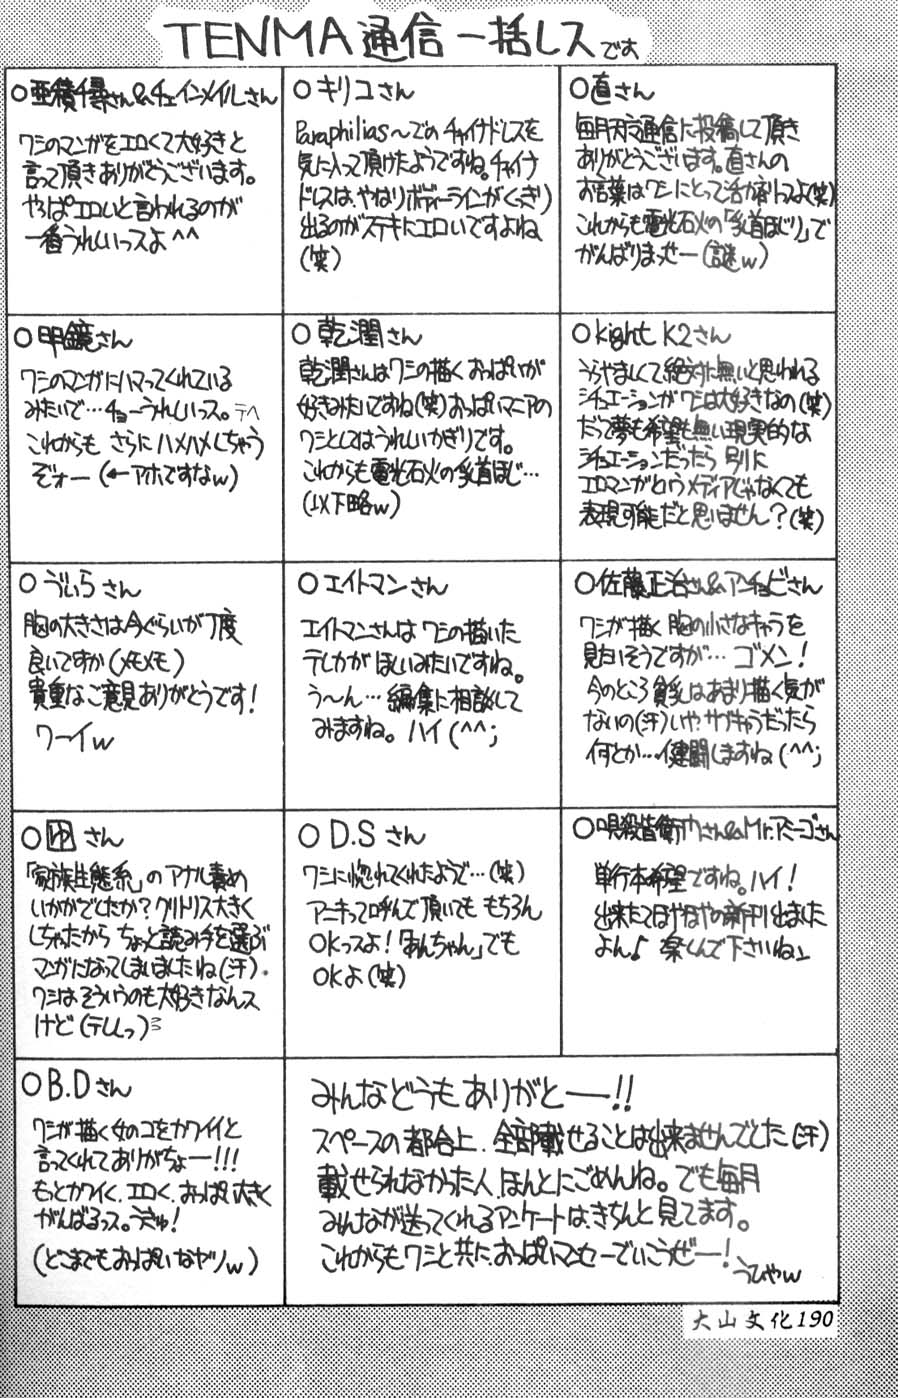 TENMA通信一括レスです
○亜積千尋さん&チェインメイルさん
ワシのマンガをエロくて大好きと
言って頂きありがとうございます。
やっぱエロいと言われるのが
一番うれしいっスよ^^
○キリコさん
Paraphilias〜でのチャイナドレスを
気に入って頂けたようですね。チャイナ
ドレスは、やはりボディーラインがくっきり
出るのがステキにエロいですよね
(笑)
○直さん
毎月天交通信に投稿して頂き
ありがとうございます。直さんの
お言葉はワシにとって活力剤っスよ(笑)
これからも電光石火の「乳首ほじり」で
がんばりまっせー(謎w)
○甲鏡さん
ワシのマンガにハマってくれている
みたいで…チョーうれしいっス。テヘ
これからも さらにハメハメしちゃう
ぞォー(←アホですなw)
○乾潤さん
乾潤さんはワシの描くおっぱいが
好きみたいですね(笑)おっぱいマニアの
ワシとしてはうれしいかぎりです。
これからも電光石火の乳首ほじ…
(以下略w)
○Kight K2さん
うらやましくて絶対に無いと思われる
シチュエーションがワシは大好きなの(笑)
だって夢も希望も無い現実的な
シチュエーションだったら 別に
エロマンガというメディアじゃなくても
表現可能だと思いません?(笑)
○うぃらさん
胸の大きさは今ぐらいが丁度
良いですか(メモメモ)
貴重なご意見ありがとうです!
ワーイw
○エイトマンさん
エイトマンさんは ワシの描いた
テレカが ほしいみたいですね。
う〜ん… 編集に相談して
みますね。ハイ(^^;
○佐藤正治さん&アンチョビさん
ワシが描く胸の小さなキャラを
見たいそうですが… ゴメン!
今のところ貧乳はあまり描く気が
ないの(汗)いや、サブキャラだったら
何とか…健闘しますね(^^;
○ゆさん
「家族生態系」のアナル責め
いかがでしたか?クリトリス大きく
しちゃたから ちょっと読み手を選ぶ
マンガになってしまいましたね(汗)。
ワシはそういうのも大好きなんス
けど(テレっ)
○D.Sさん
ワシに惚れてくれたようで…(笑)
アニキって呼んで頂いても もちろん
OKっスよ!「あんちゃん」でも
OKよ(笑)
○さん&Mr.アミーゴさん
単行本希望ですね。ハイ!
出来たてほやほやの新刊出ました
よん♪ 楽しんで下さいね」
○B.Dさん
ワシが描く女のコをカワイイと
言ってくれてありがちょー!!!
もっとカワイく、エロく、おっぱい大きく
がんばるっス。うきゅ!
(どこまでもおっぱいなヤツw)
みんなどうもありがとーー!!
スペースの都合上、全部載せることは出来ませんでした(汗)
載せられなかった人、ほんとにごめんね。でも毎月
みんなが送ってくれるアンケートは、きちんと見てます。
これからもワシと共に、おっぱいマンセーでいこうぜー!
うひゃw
大山文化190